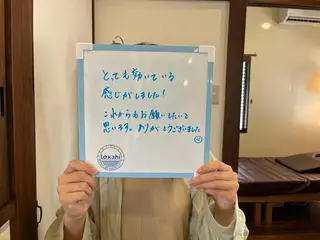 とても効いている
感じがしました!
これからもお願いしたいと
思います。ありがとうございました
Lokahi